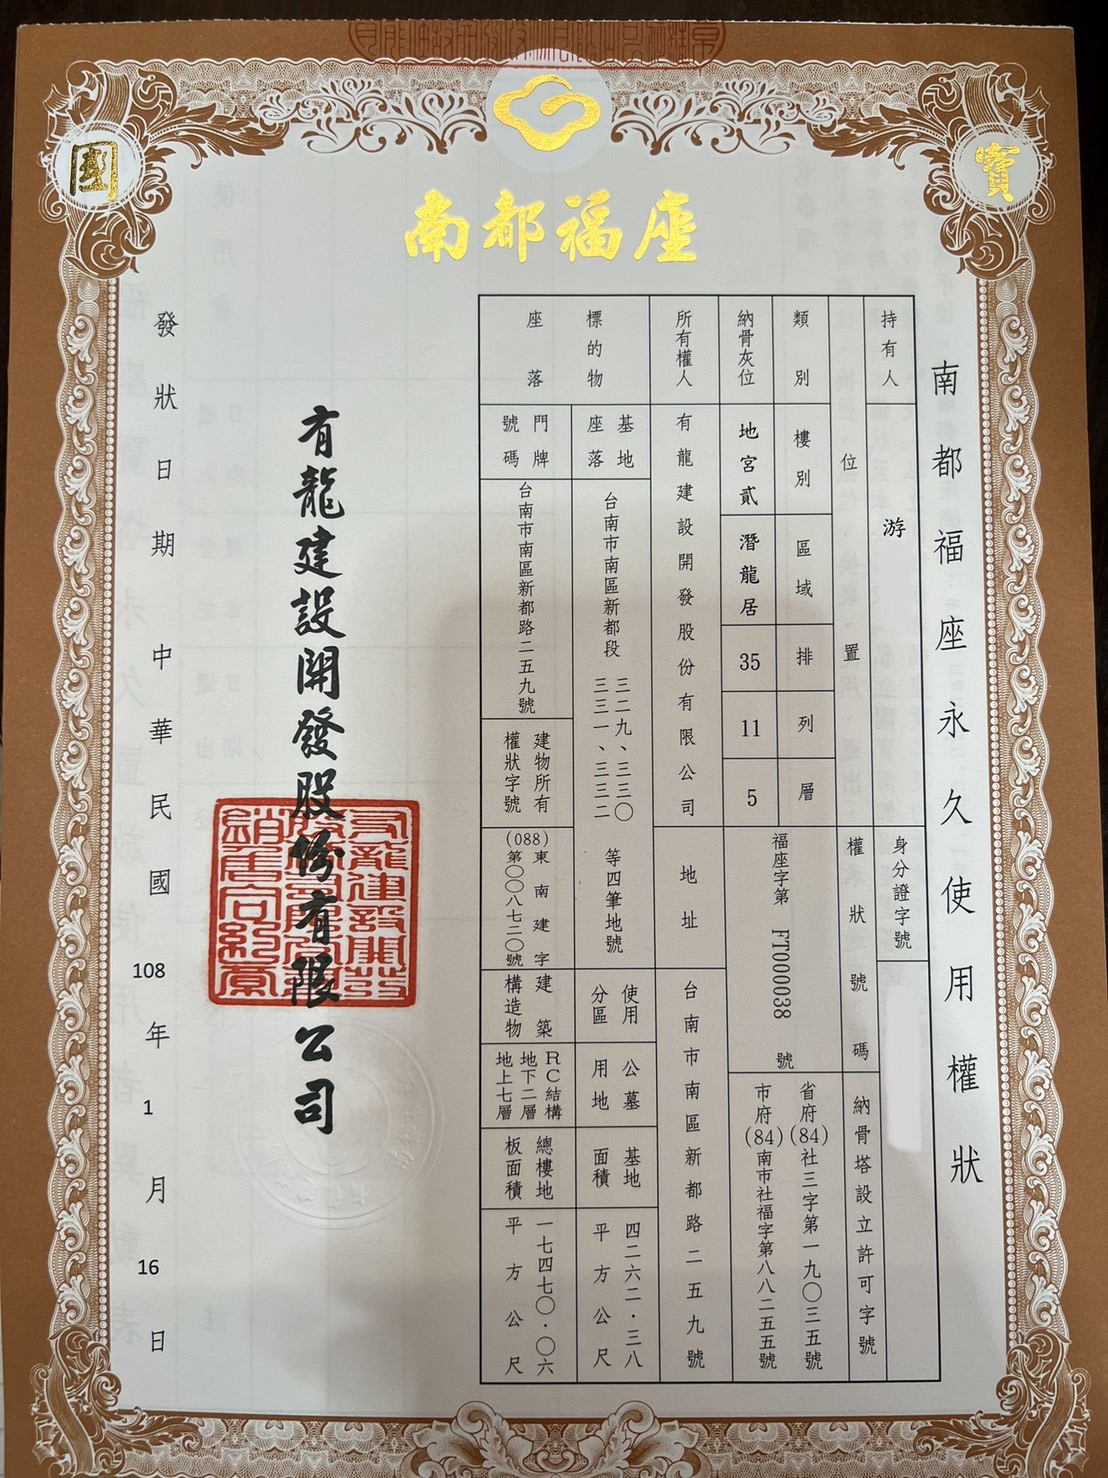 國
寶
南都福座
南都福座永久使用權狀
持有人
游
身分證字號
位置
權狀號碼
納骨塔設立許可字號
類別
樓別
區域
排
列
層
福座字第 FT000038 號
省府(84)社三字第一九〇三五號
市府(84)南市社福字第八八二五五號
納骨灰位
地宮貳
潛龍居
35
11
5
所有權人
有龍建設開發股份有限公司
地址
台南市南區新都路二五九號
標的物
座落
基地
座落
台南市南區新都段
三二九、三三〇
三三一、三三二
等四筆地號
使用
分區
公墓
用地
基地
面積
四二六二.三八
平方公尺
門牌
號碼
台南市南區新都路二五九號
建物所有
權狀字號
(088)東南建字
第〇〇八七二〇號
建築
構造物
RC結構
地下二層
地上七層
總樓地
板面積
一七四七〇.〇六
平方公尺
有龍建設開發股份有限公司
發狀日期 中華民國 108 年 1 月 16 日